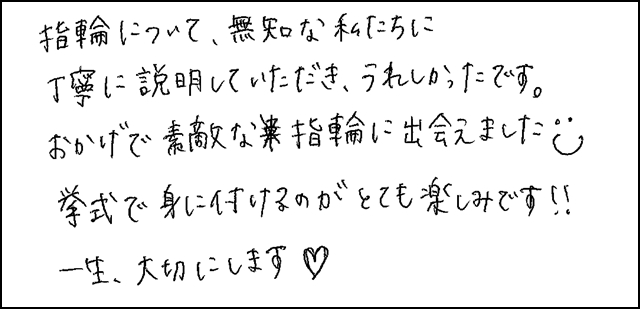 指輪について、無知な私たちに
丁寧に説明していただき、うれしかったです。
おかげで素敵な指輪に出会えました
挙式で身に付けるのがとても楽しみです!!
一生、大切にします♡